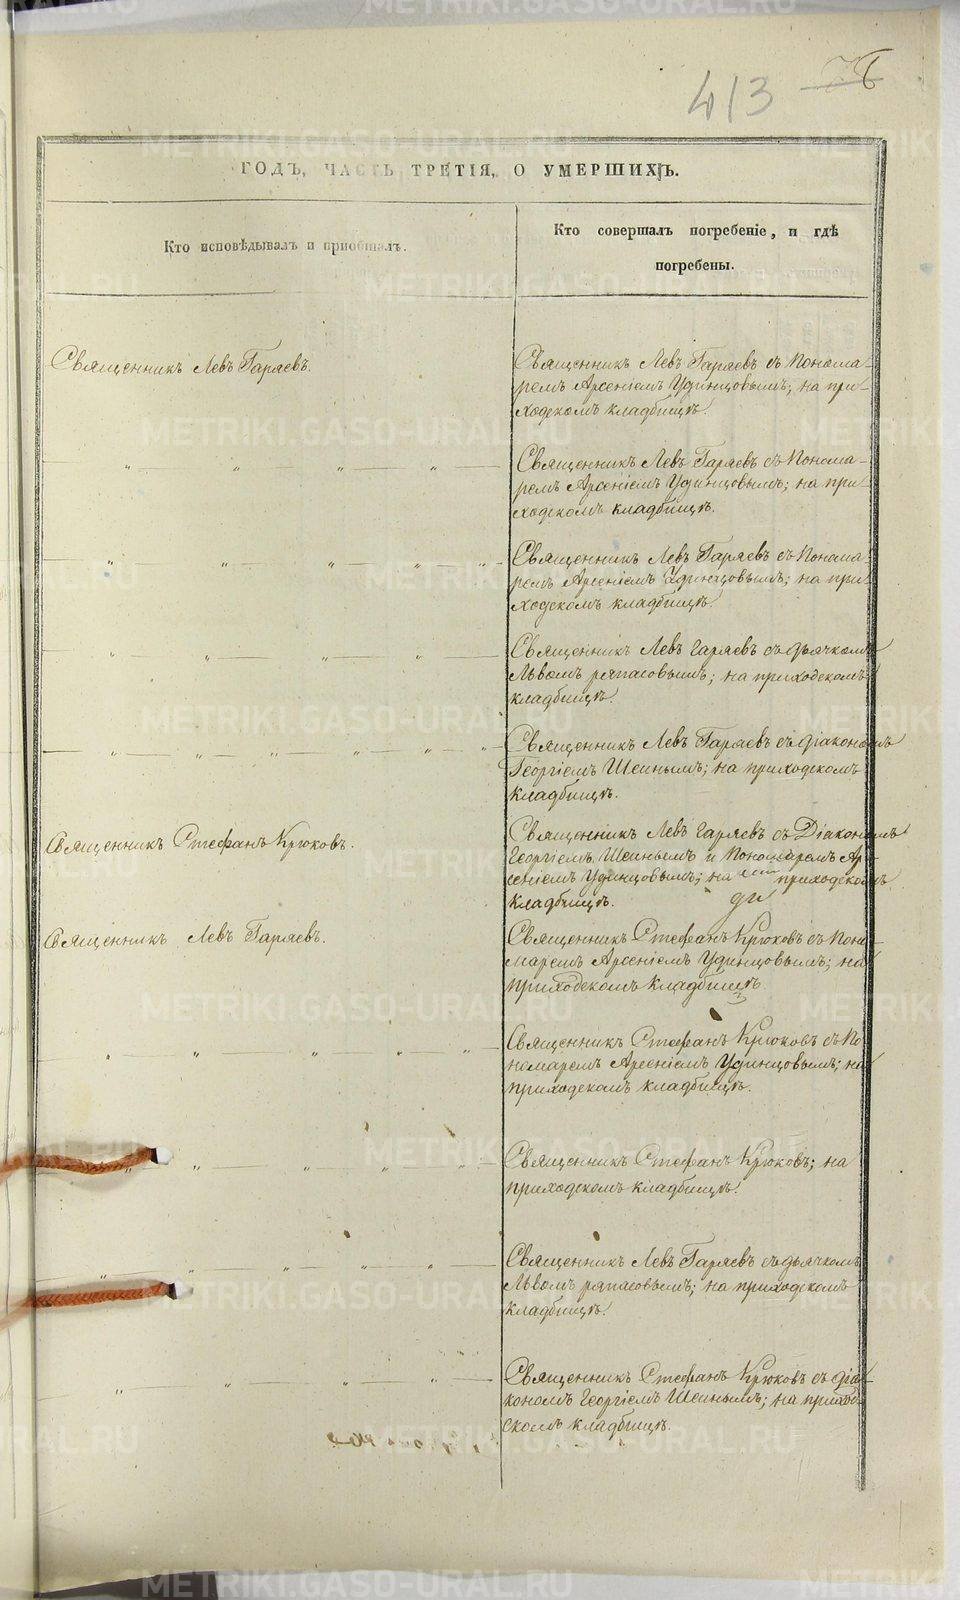 413
ГОДЪ, ЧАСТЬ ТРЕТІЯ, О УМЕРШИХЪ.
Кто исповѣдывалъ и пріобщалъ.
Кто совершалъ погребеніе, и гдѣ
погребены.
Священникъ Левъ Гаряевъ.
Священникъ Левъ Гаряевъ съ Понома-
ремъ Арсеніемъ Удинцовымъ; на при-
ходскомъ кладбищѣ.
" " " "
Священникъ Левъ Гаряевъ съ Понома-
ремъ Арсеніемъ Удинцовымъ; на при-
ходскомъ кладбищѣ.
" " " " "
Священникъ Левъ Гаряевъ съ Понома-
ремъ Арсеніемъ Удинцовымъ; на при-
ходскомъ кладбищѣ.
" " " "
Священникъ Левъ Гаряевъ съ дьячкомъ
Львомъ ряпасовымъ; на приходскомъ
кладбищѣ.
" " " " "
Священникъ Левъ Гаряевъ съ діакономъ
Георгіемъ Шеинымъ; на приходскомъ
кладбищѣ.
Священникъ Стефанъ Крюковъ.
Священникъ Левъ Гаряевъ съ Діакономъ
Георгіемъ Шеинымъ и Пономаремъ Ар-
сеніемъ Удинцовымъ; на приходскомъ
кладбищѣ.
Священникъ Левъ Гаряевъ.
Священникъ Стефанъ Крюковъ съ Поно-
маремъ Арсеніемъ Удинцовымъ; на
приходскомъ кладбищѣ
" " " " "
Священникъ Стефанъ Крюковъ съ По
номаремъ Арсеніемъ Удинцовымъ; на
приходскомъ кладбищѣ.
" " " " "
Священникъ Стефанъ Крюковъ; на
приходскомъ кладбищѣ.
" " " " "
Священникъ Левъ Гаряевъ съ дьячкомъ
Львомъ ряпасовымъ; на приходскомъ
кладбищѣ.
" " " "
Священникъ Стефанъ Крюковъ съ діа-
кономъ Георгіемъ Шеинымъ; на приход-
скомъ кладбищѣ.
METRIKI.GASO-URAL.RU